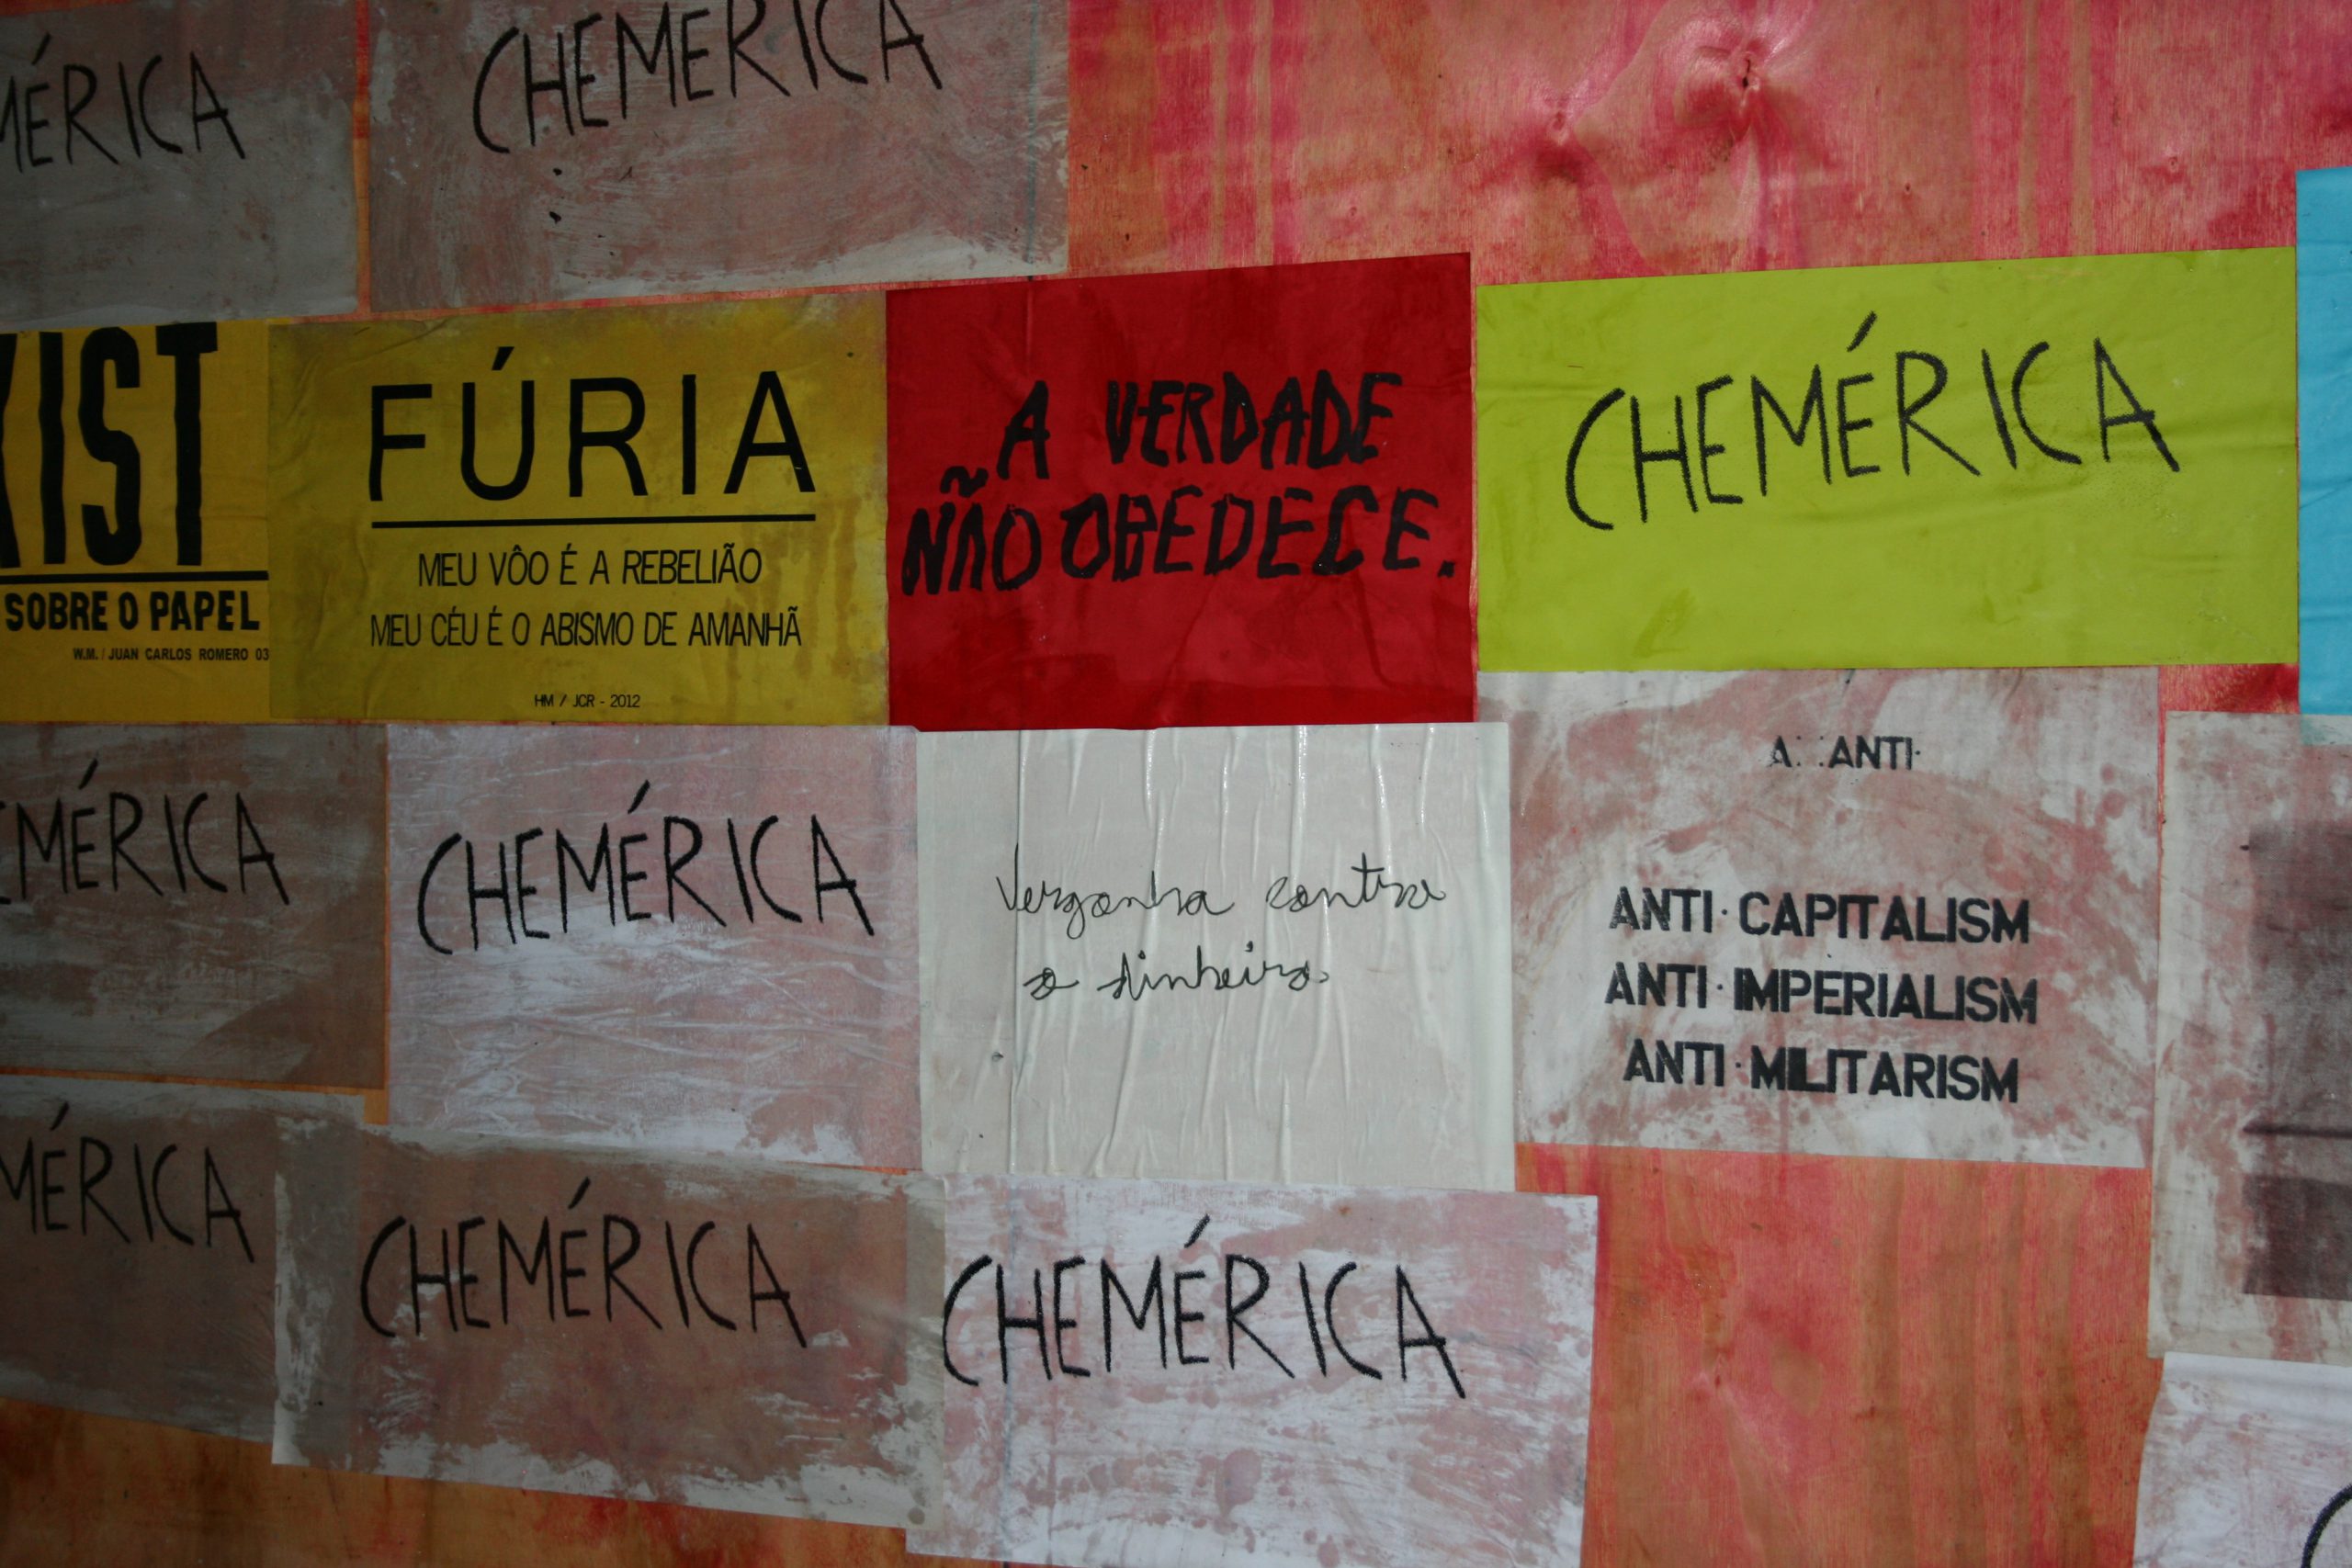 MÉRICA
CHEMÉRICA
XIST
SOBRE O PAPEL
W.M. / JUAN CARLOS ROMERO 03
FÚRIA
MEU VÔO É A REBELIÃO
MEU CÉU É O ABISMO DE AMANHÃ
HM / JCR - 2012
A VERDADE
NÃO OBEDECE.
CHEMÉRICA
EMÉRICA
CHEMÉRICA
Vergonha contra
o dinheiro.
ANTI·
ANTI·CAPITALISM
ANTI·IMPERIALISM
ANTI·MILITARISM
MÉRICA
CHEMÉRICA
CHEMÉRICA